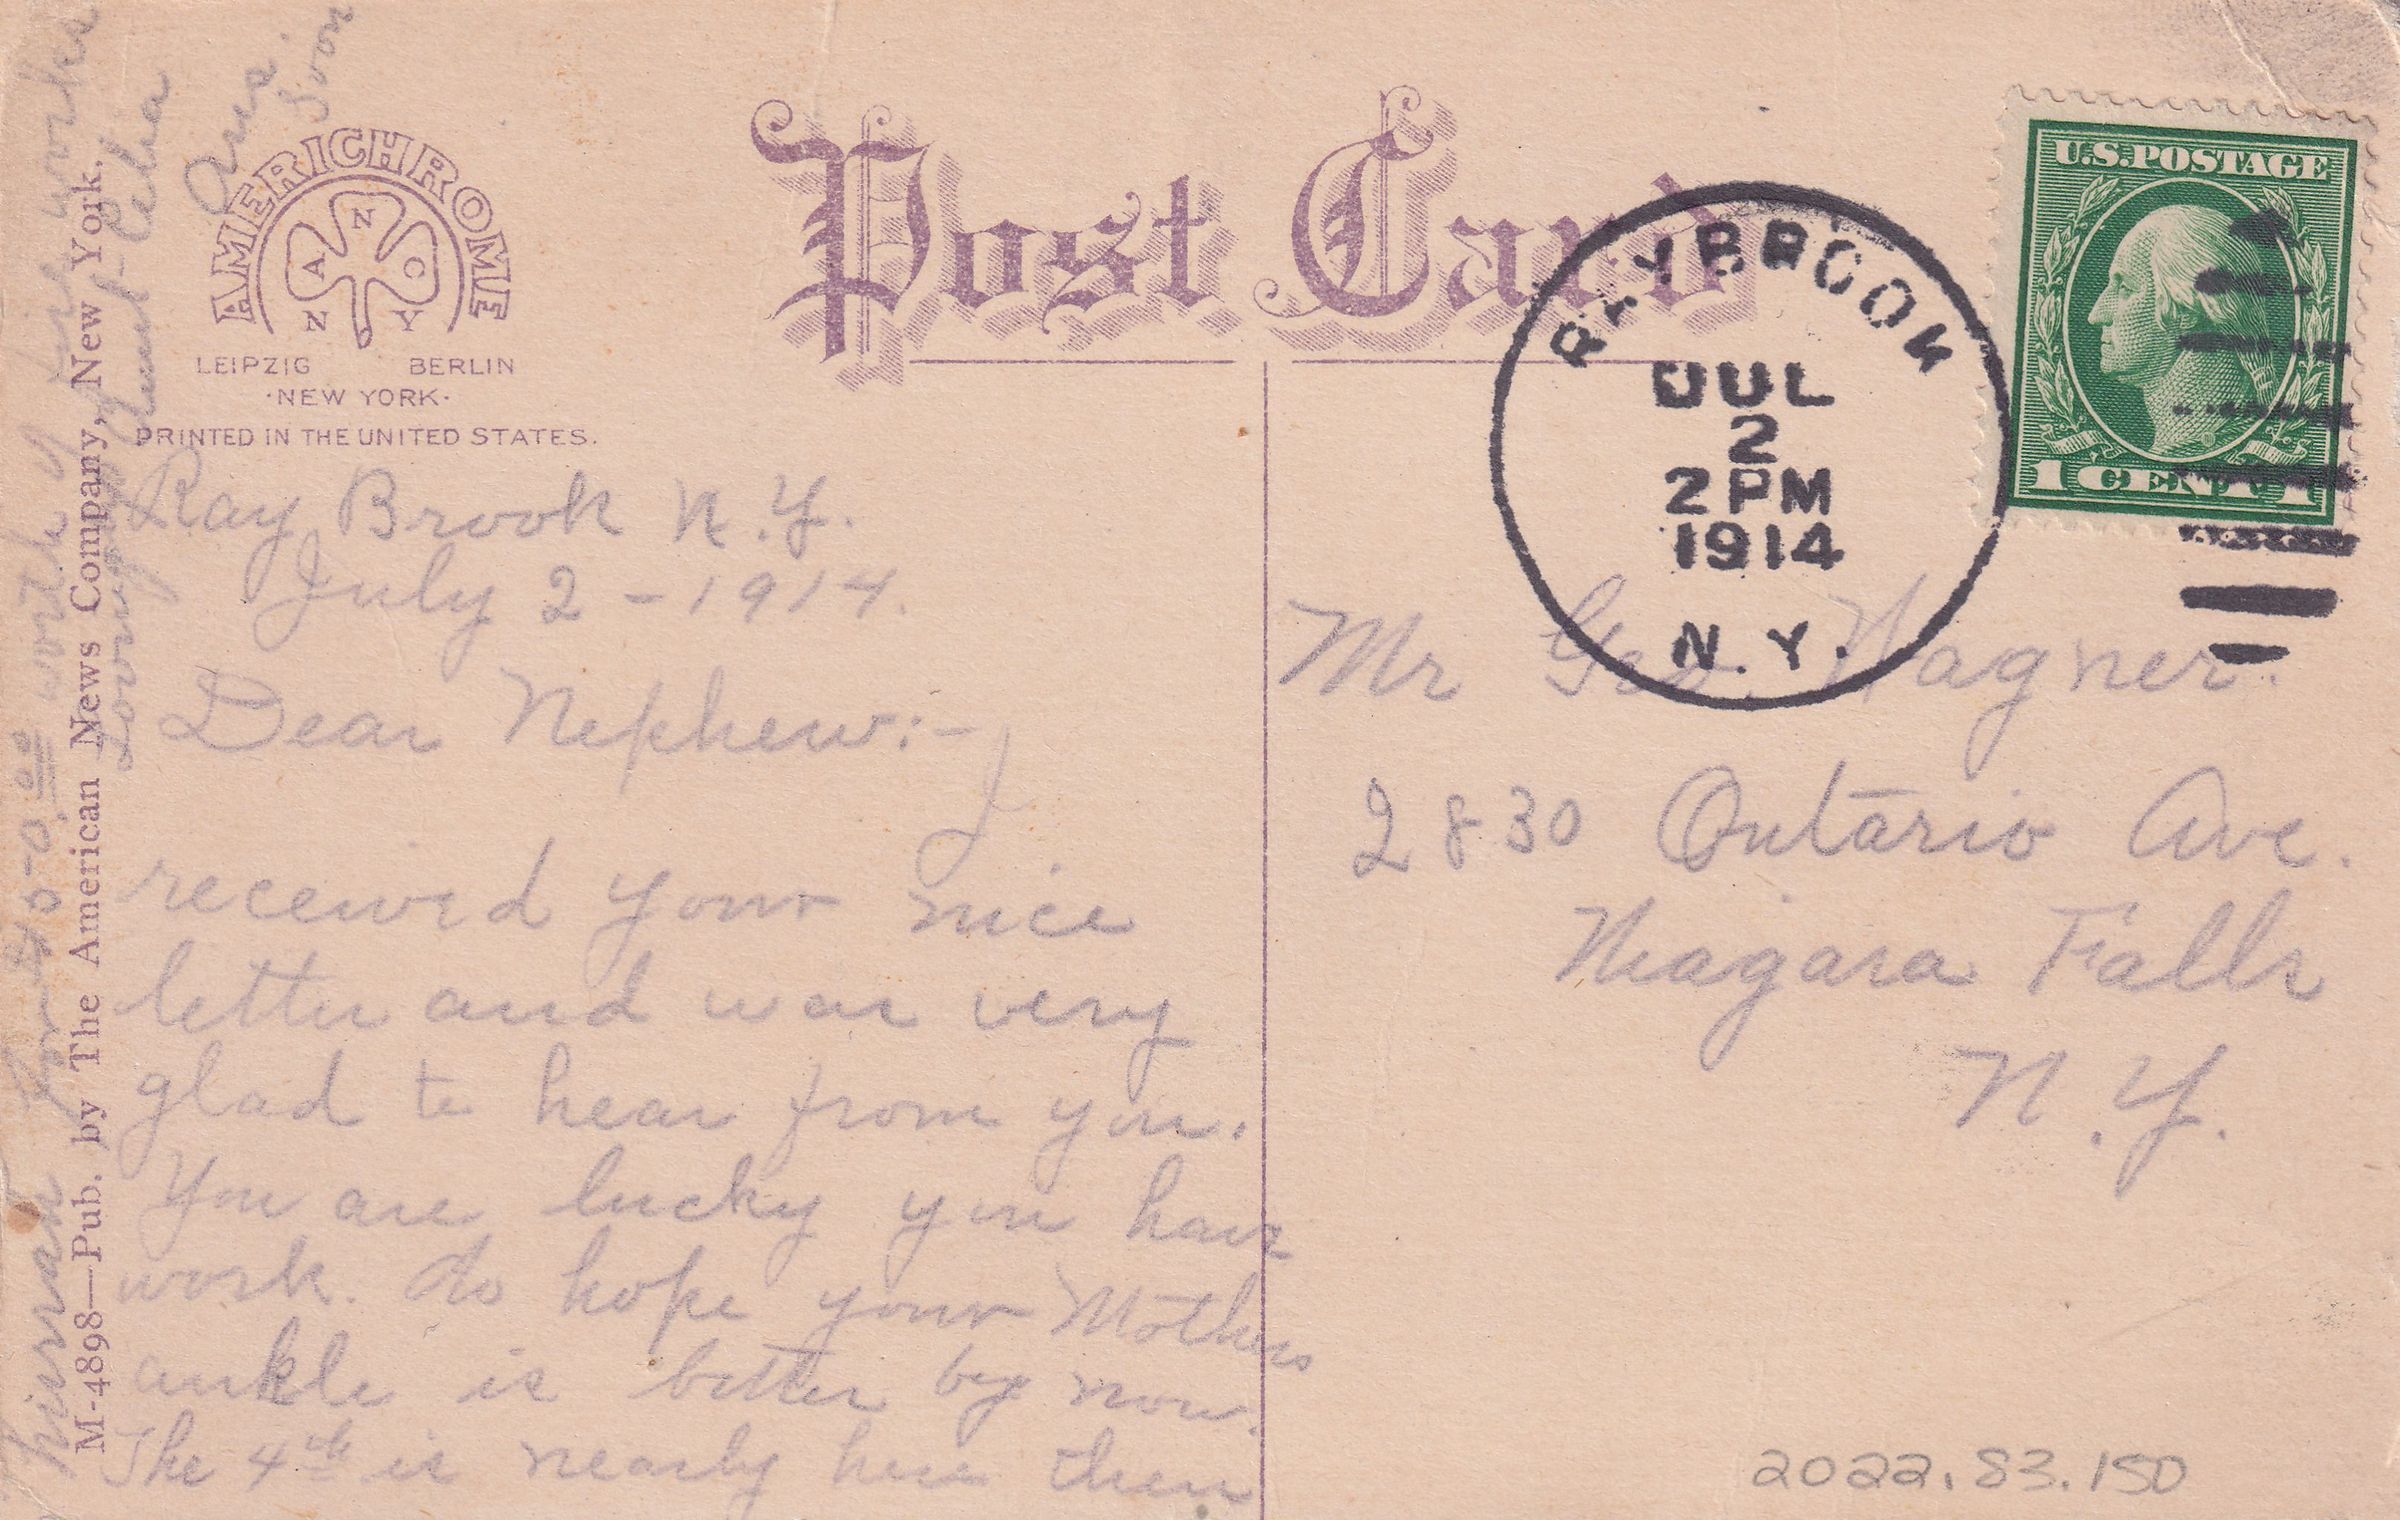 AMERICHROME
N
A C
N Y
LEIPZIG BERLIN
·NEW YORK·
PRINTED IN THE UNITED STATES.
Post Card
U.S. POSTAGE
1 CENT 1
RAYBROOK
JUL
2
2 PM
1914
N.Y.
Ray Brook N.Y.
July 2 - 1914.
Dear Nephew:-
I
received your nice
letter and was very
glad to hear from you.
You are lucky you have
work. do hope your Mothers
ankle is better by now.
The 4th is nearly here then
work of fire works
Loving Aunt
Ans.
Soon
M-4898—Pub. by The American News Company, New York.
Mr Geo. Wagner.
2830 Ontario Ave.
Niagara Falls
N.Y.
2022.83.150